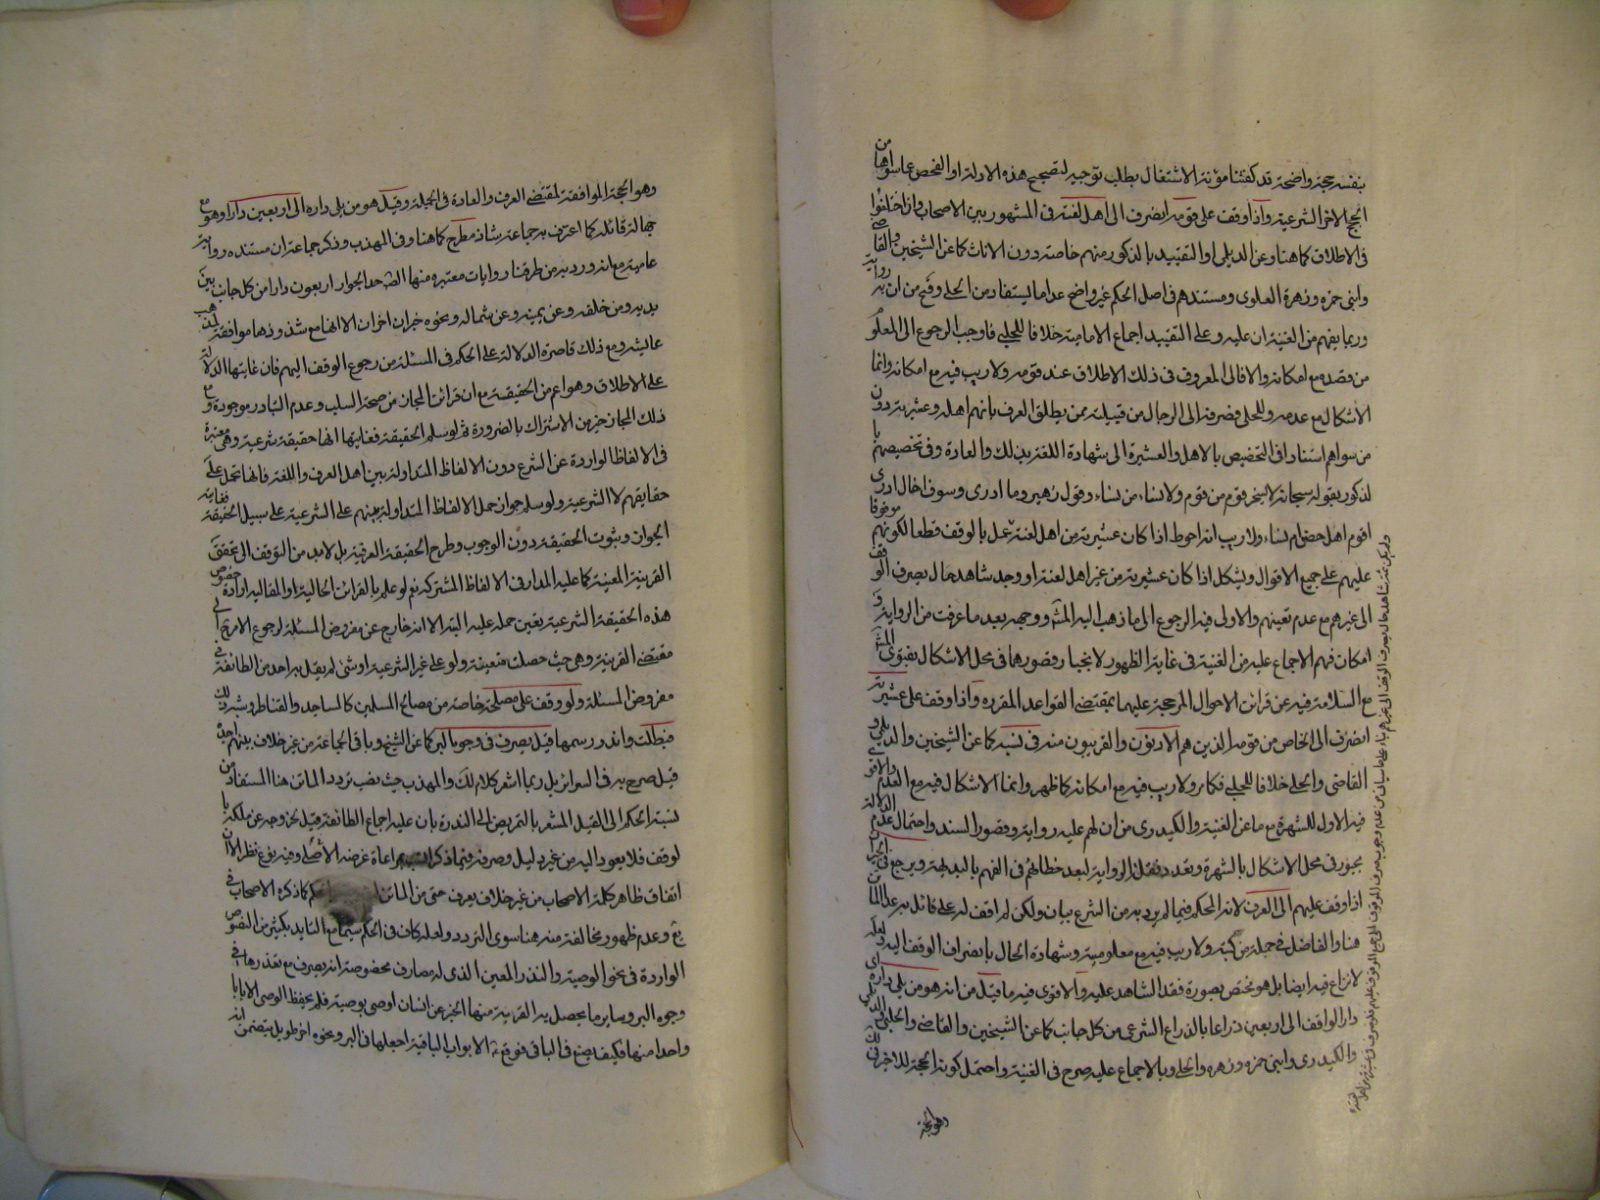 بنفسه حجة واضحة قد كفتنا مؤنة الاشتغال بطلب توجيه لتصحيح هذه الادلة او الفحص عما سواها من
الحجج الاخر الشرعية واذا وقف على قومه انصرف الى اهل لغته فى المشهور بين الاصحاب وان اختلفوا
فى الاطلاق كما هنا وعن الديلمى او التقييد بالذكور منهم خاصة دون الاناث كما عن الشيخين والقاضى
وابنى حمزه وزهرة العلوى ومستندهم فى اصل الحكم غير واضح عدا ما يستفاد من الحلى وقع من ان به رواية
وربما يفهم من الغنية ان عليه وعلى التقييد اجماع الامامية خلافا للحلى فاوجب الرجوع الى المعلوم
من قصده مع امكانه والا فالى المعروف فى ذلك الاطلاق عند قومه ولا ريب فيه مع امكانه وانما
الاشكال مع عدمه وللحلى فصرفه الى الرجال من قبيلته ممن يطلق العرف بانهم اهله وعشيرته دون
من سواهم استنادا فى التخصيص بالاهل والعشيرة الى شهادة اللغة بذلك والعادة وفى تخصيصهم با
لذكور بقوله سبحانه لا يسخر قوم من قوم ولا نساء من نساء وقول زهير وما ادرى وسوف اخال ادرى
اقوم آل حصن ام نساء ولا ريب انه احوط اذا كان عشيرته من اهل لغته عمل بالوقف قطعا لكونهم موقوفا
عليهم على جميع الاقوال ويشكل اذا كان عشيرته من غير اهل لغته او وجد شاهد حال بصرف الوقف
الى غيرهم مع عدم تعينهم والاولى فيه الرجوع الى ما ذهب اليه المشهور ووجهه بعد ما عرفت من الرواية و
امكان فهم الاجماع عليه من الغنية فى غاية الظهور لانجبار قصورهما فى محل الاشكال بفتوى المشهور
مع السلامة فيه عن قرائن الاحوال المرجحة عليهما بمقتضى القواعد المقرره واذا وقف على عشيرته
انصرف الى الخاص من قومه الذين هم الادنون والقريبون منه فى نسبه كما عن الشيخين والديلمى و
القاضى والحلى خلافا للحلى فكامر ولا ريب فيه مع امكانه كما ظهر وانما الاشكال فيه مع العدم والاقوى
فيه الاول للشهرة مع ما عن الغنية والكيدرى من ان لهم عليه رواية وقصور السند واحتمال عدم الدلالة
مجبور فى محل الاشكال بالشهرة وتعدد نقلة الرواية لبعد خطائهم فى الفهم بالبديهة ويرجع فى الجيران
اذا وقف عليهم الى العرف لانه المحكم فيما لم يرد به من الشرع بيان ولكن لم اقف له على قائل به عدا الماتن
هنا والفاضل فى جملة من كتبه ولا ريب فيه مع معلوميته وشهادة الحال بانصراف الوقف اليه ولعله
لا نزاع فيه ايضا بل هو مختص بصورة فقد الشاهد عليه والاقوى فيه ما قيل من انه هو من يلى داره اى
دار الواقف الى اربعين ذراعا بالذراع الشرعى من كل جانب كما عن الشيخين والقاضى والحلبى والديلمى
والكيدرى وابنى حمزه وزهره والحلى وبالاجماع عليه صرح فى الغنية واحتمل كونه الحجة للاخر فى لك
وهو الحجة
وهو الحجة الموافقة لمقتضى العرف والعادة فى الجملة وقيل هو من يلى داره الى اربعين دارا وهو مع
جهالة قائله كما اعترف به جماعة شاذ مطرح كما هنا وفى المهذب وذكر جماعة ان مستنده رواية
عامية مع انه ورد به من طرقنا روايات معتبره منها الصحيح حد الجوار اربعون دارا من كل جانب بين
يديه ومن خلفه وعن يمينه وعن شماله ونحوه خبران اخران الا انها مع شذوذها موافقة لمذهب
عايشه ومع ذلك قاصرة الدلالة على الحكم فى المسئلة من رجوع الوقف اليهم فان غايتها الدلالة
على الاطلاق وهو اعم من الحقيقة مع ان قرائن المجاز من صحة السلب وعدم التبادر موجودة ومع
ذلك المجاز خير من الاشتراك بالضرورة ثم لو سلم الحقيقة فغايتها انها حقيقة شرعية وهى معتبرة
فى الالفاظ الواردة عن الشرع دون الالفاظ المتداولة بين اهل العرف واللغة فانها تحمل على
حقايقهم لا الشرعية ولو سلم جواز حمل الالفاظ المتداولة بينهم على الشرعية على سبيل الحقيقة فغايته
الجواز وثبوت الحقيقة دون الوجوب وطرح الحقيقة العرفية بل لا بد من التوقف الى تحقق
القرينة المعينة كما عليه المدار فى الالفاظ المشتركه نعم لو علم بالقرائن الحالية او المقالية ارادة خصوص
هذه الحقيقة الشرعية تعين حمله عليه البتة الا انه خارج عن مفروض المسئلة لرجوع الامر الى
مقتضى القرينة وهى حيث حصلت متعينة ولو على غير الشرعية او شئ لم يقل به احد من الطائفة فى
مفروض المسئلة ولو وقف على مصلحة خاصة من مصالح المسلمين كالمساجد والقناطر وشبه ذلك
فبطلت واندرس رسمها قيل يصرف فى وجوه البر كما عن الشيخ وباقى الجماعة من غير خلاف بينهم اجده
قبل صرح به فى السرائر بل ربما اشعر كلام لك والمهذب حيث نصب تردد الماتن هنا المستفاد من
نسبته الحكم الى القيل المشعر بالتمريض الى الندرة بان عليه اجماع الطائفة قيل لخروجه عن ملكه با
لوقف فلا يعود اليه من غير دليل وصرفه فيما ذكر انسب بمراعاة غرضه الاصلى وفيه نوع نظر الا ان
اتفاق ظاهر كلمة الاصحاب من غير خلاف يعرف حتى من الماتن كما ذكره الاصحاب فى
يع وعدم ظهور مخالفته منه هنا سوى التردد ولعله كاف فى الحكم سيما مع التايد بكثير من النصوص
الواردة فى نحو الوصية والنذر المعين الذى له مصارف مخصوصة انه يصرف مع تعذرها فى
وجوه البر وساير ما يحصل به القربة منها الخبر عن انسان اوصى بوصية فلم يحفظ الوصى الا بابا
واحدا منها فكيف يصنع فى الباقى فوقع ع الابواب الباقية اجعلها فى البر ونحوه اخر طويل يتضمن انه